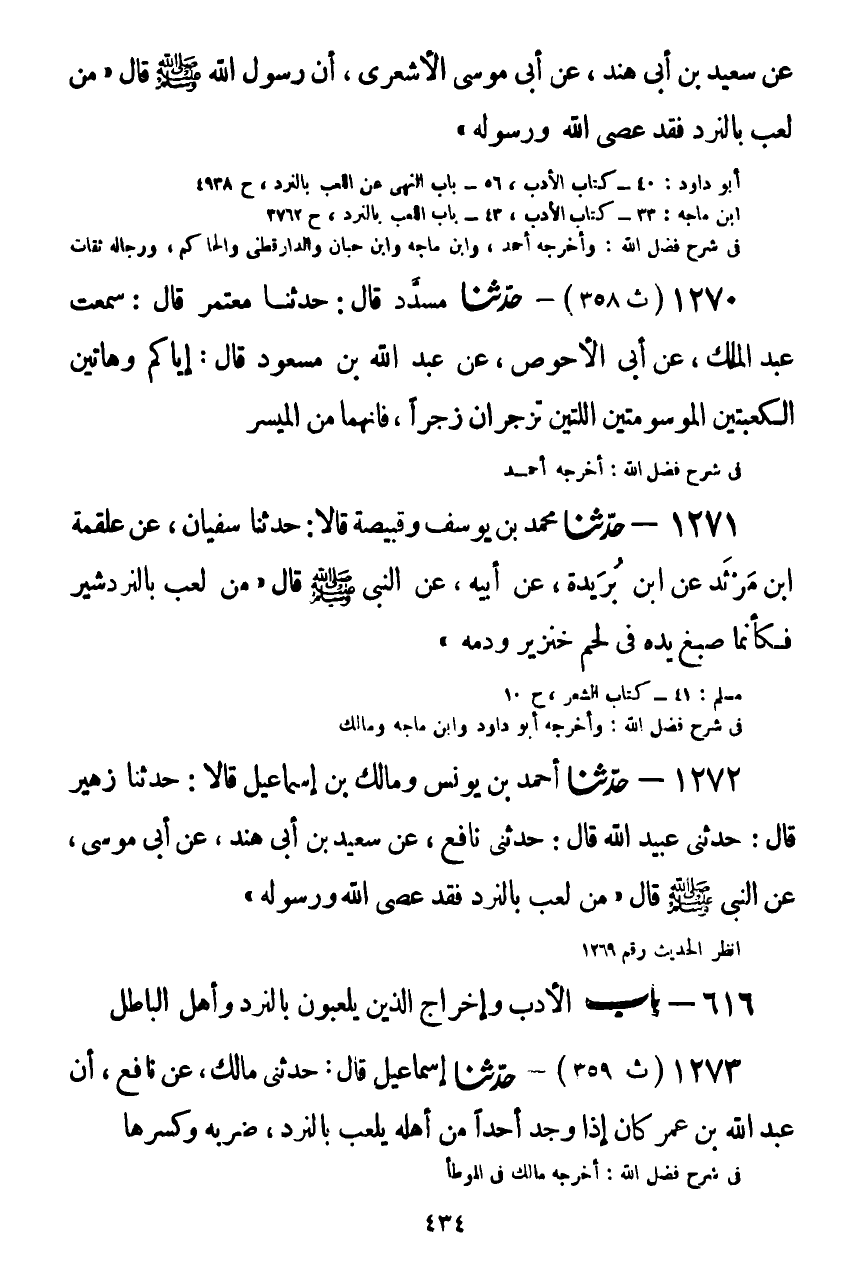 عن سعيد بن أبى هند ، عن أبى موسى الأشعرى ، أن رسول الله ﷺ قال « من
لعب بالنرد فقد عصى الله ورسوله »
أبو داود : ٤٠ ــ كتاب الأدب ، ٥٦ ــ باب النهى عن اللعب بالنرد ، ح ٤٩٣٨
ابن ماجه : ٣٣ ــ كتاب الأدب ، ٤٣ ــ باب اللعب بالنرد ، ح ٣٧٦٢
فى شرح فضل الله : وأخرجه أحمد ، وابن ماجه وابن حبان والدارقطنى والحاكم ، ورجاله ثقات
١٢٧٠ ( ث ٣٥٨ ) – حدّثنا مسدَّد قال : حدثنا معتمر قال : سمعت
عبد الملك ، عن أبى الأحوص ، عن عبد الله بن مسعود قال : إياكم وهاتين
الكعبتين الموسومتين اللتين تزجران زجراً ، فانهما من الميسر
فى شرح فضل الله : أخرجه أحمد
١٢٧١ – حدّثنا محمد بن يوسف وقبيصة قالا : حدثنا سفيان ، عن علقمة
ابن مَرْثَد عن ابن بُرَيدة ، عن أبيه ، عن النبى ﷺ قال « من لعب بالنردشير
فكأنما صبغ يده فى لحم خنزير ودمه »
مسلم : ٤١ ــ كتاب الشعر ، ح ١٠
فى شرح فضل الله : وأخرجه أبو داود وابن ماجه ومالك
١٢٧٢ – حدّثنا أحمد بن يونس ومالك بن إسماعيل قالا : حدثنا زهير
قال : حدثنى عبيد الله قال : حدثنى نافع ، عن سعيد بن أبى هند ، عن أبى موسى ،
عن النبى ﷺ قال « من لعب بالنرد فقد عصى الله ورسوله »
انظر الحديث رقم ١٢٦٩
٦١٦ – باب الأدب وإخراج الذين يلعبون بالنرد وأهل الباطل
١٢٧٣ ( ث ٣٥٩ ) – حدّثنا إسماعيل قال : حدثنى مالك ، عن نافع ، أن
عبد الله بن عمر كان إذا وجد أحداً من أهله يلعب بالنرد ، ضربه وكسرها
فى شرح فضل الله : أخرجه مالك فى الموطأ
٤٣٤